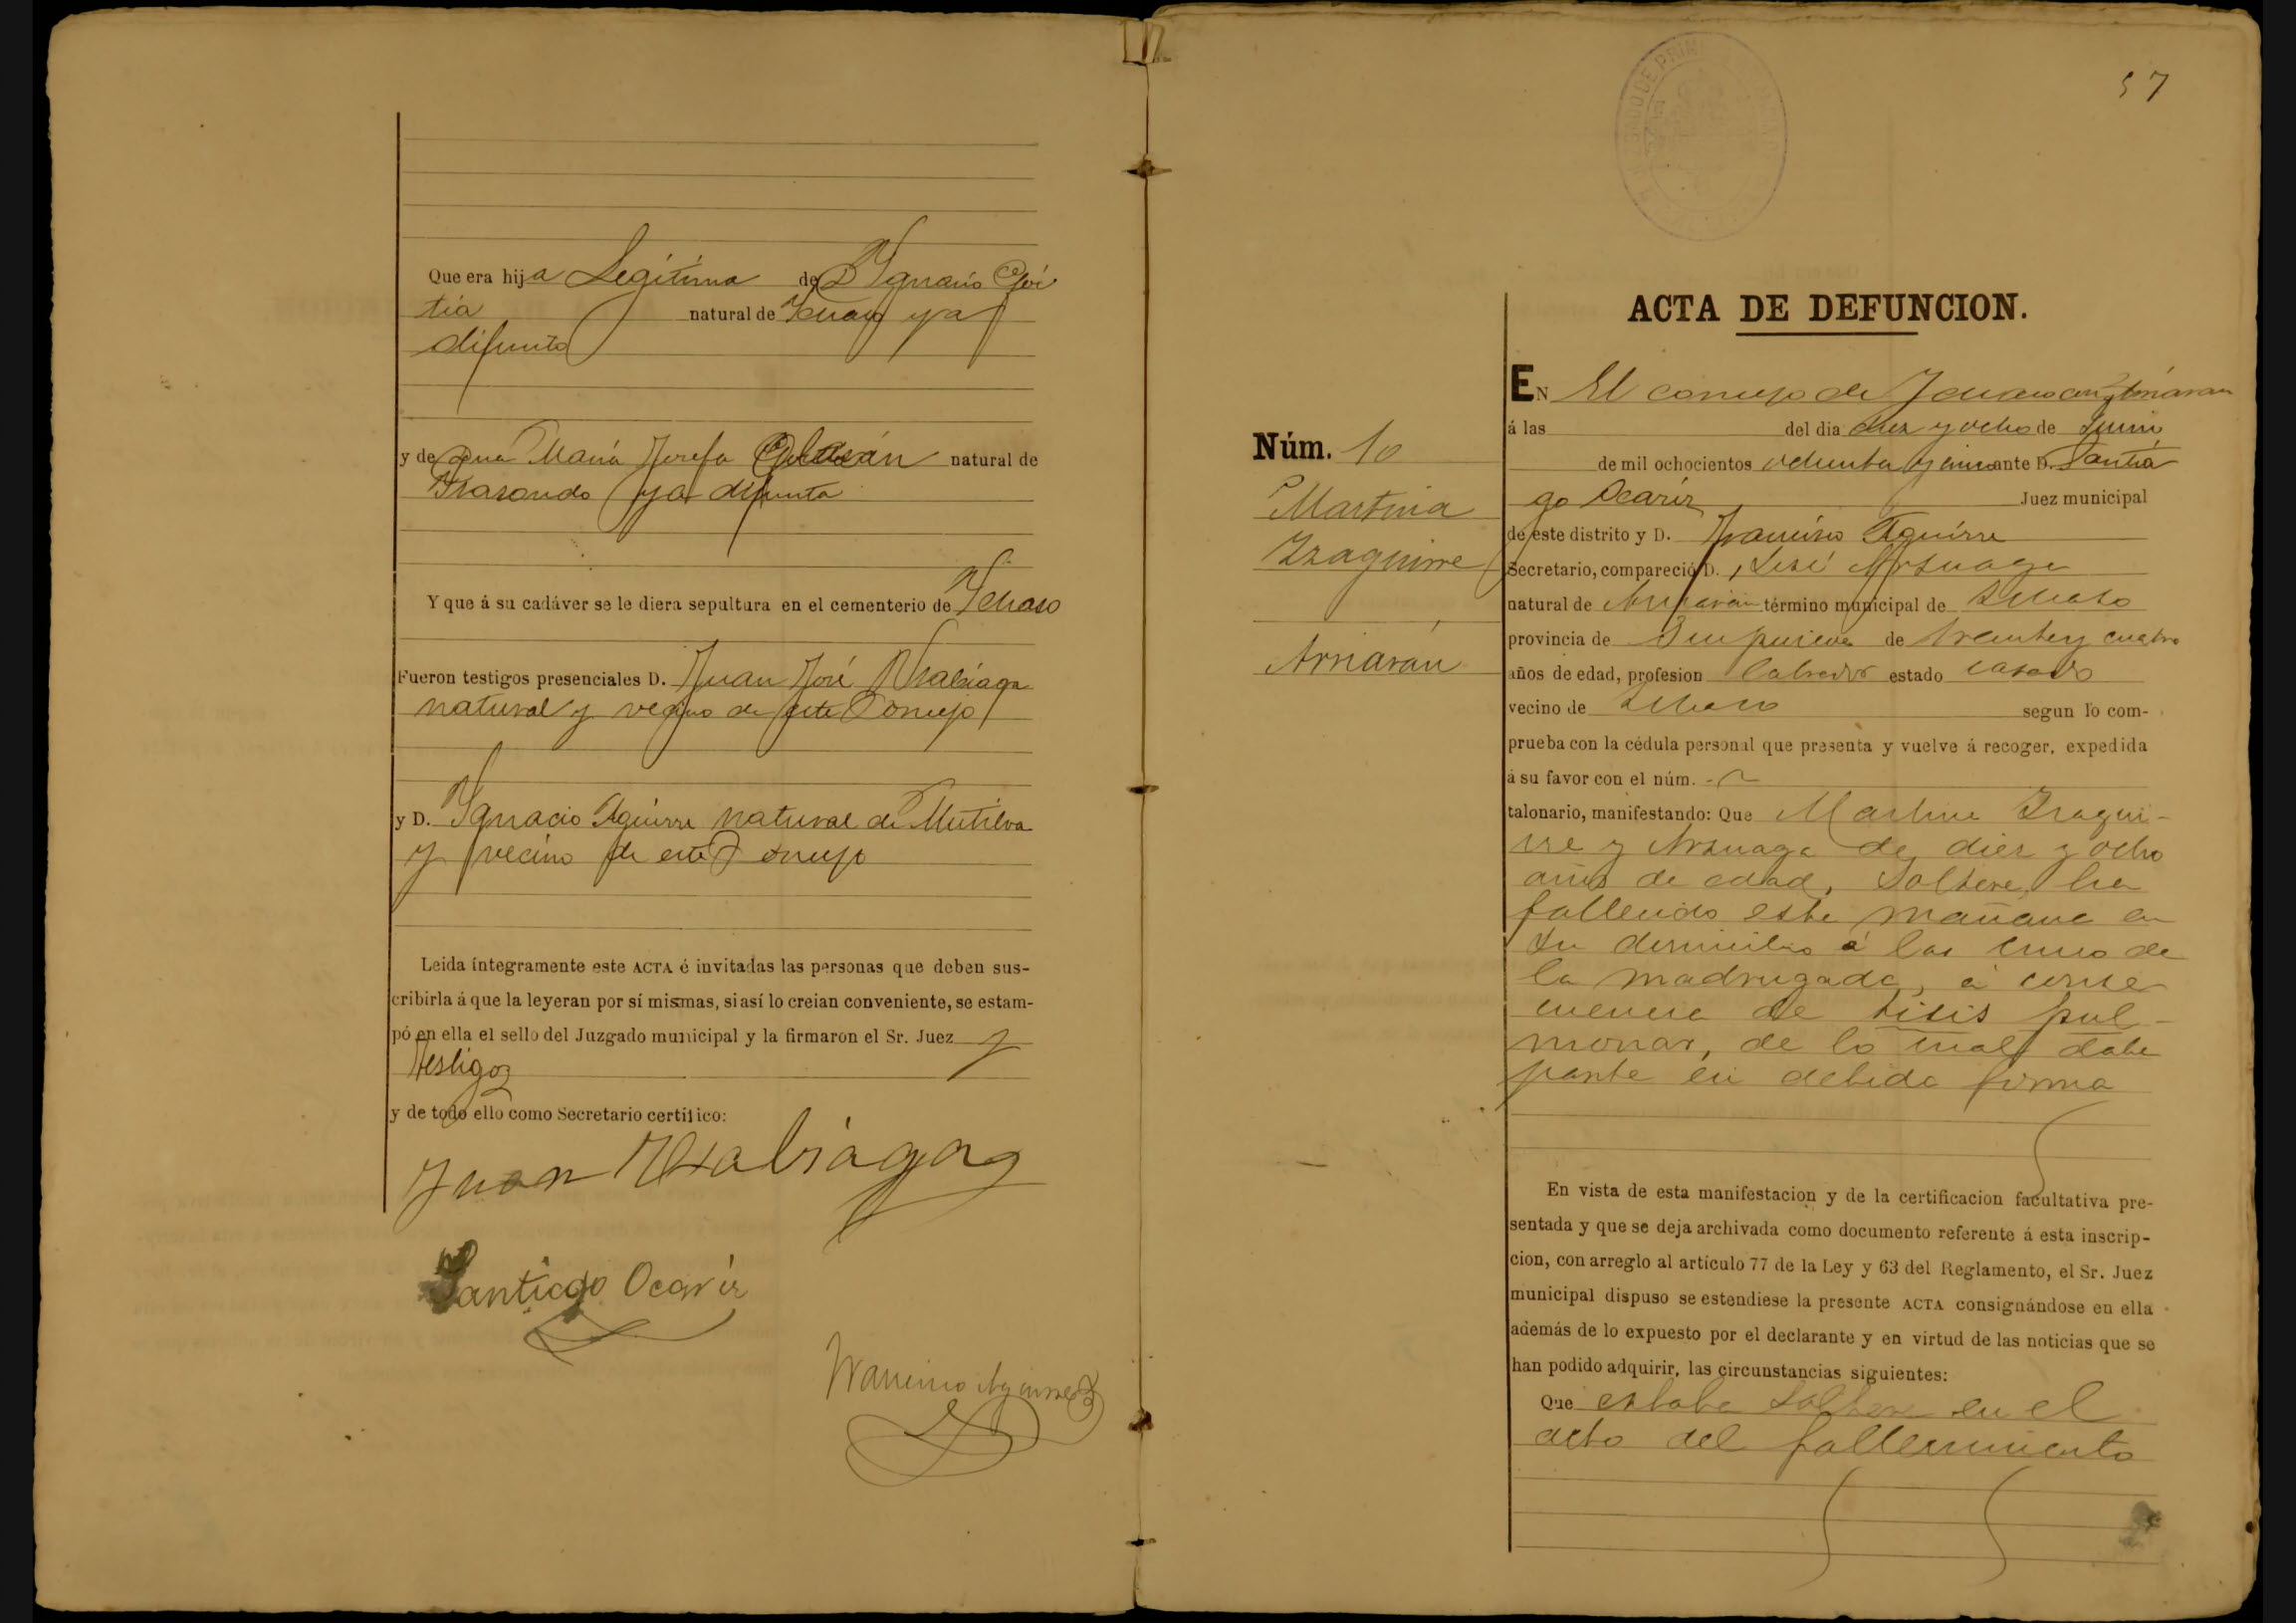 Que era hija Legítima de D Ygnacio Goi
tia natural de Ychaso ya
difunto
y de Dna María Josefa natural de
ya difunta
Y que á su cadáver se le diera sepultura en el cementerio de Ychaso
Fueron testigos presenciales D. Juan José Usabiaga
natural y vecino de este Concejo
y D. Ygnacio Aguirre natural de Mutiloa
y vecino de este Concejo
Leida íntegramente este ACTA é invitadas las personas que deben sus-
cribirla á que la leyeran por sí mismas, si así lo creian conveniente, se estam-
pó en ella el sello del Juzgado municipal y la firmaron el Sr. Juez y
testigos
y de todo ello como Secretario certifico:
Juan Usabiaga
Santiago Ocariz
Aguirre
57
ACTA DE DEFUNCION.
Núm. 10
Martina
Izaguirre
Arriarán
EN El concejo de Ychaso con Arriaran
á las del dia diez y ocho de Junio
de mil ochocientos ochenta y cinco ante D. Santia
go Ocariz Juez municipal
de este distrito y D. Francisco Aguirre
Secretario, compareció D. José Arzuaga
natural de Arriaran término municipal de Ichaso
provincia de Guipuzcoa de treinta y cuatro
años de edad, profesion labrador estado casado
vecino de Ichaso segun lo com-
prueba con la cédula personal que presenta y vuelve á recoger, expedida
á su favor con el núm.
talonario, manifestando: Que Martina Izagui-
rre y Arzuaga de diez y ocho
años de edad, Soltera, ha
fallecido esta mañana en
su domicilio á las cinco de
la madrugada, á conse-
cuencia de tisis pul-
monar, de lo cual daba
parte en debida forma
En vista de esta manifestacion y de la certificacion facultativa pre-
sentada y que se deja archivada como documento referente á esta inscrip-
cion, con arreglo al artículo 77 de la Ley y 63 del Reglamento, el Sr. Juez
municipal dispuso se estendiese la presente ACTA consignándose en ella
además de lo expuesto por el declarante y en virtud de las noticias que se
han podido adquirir, las circunstancias siguientes:
Que estaba soltera en el
acto del fallecimiento